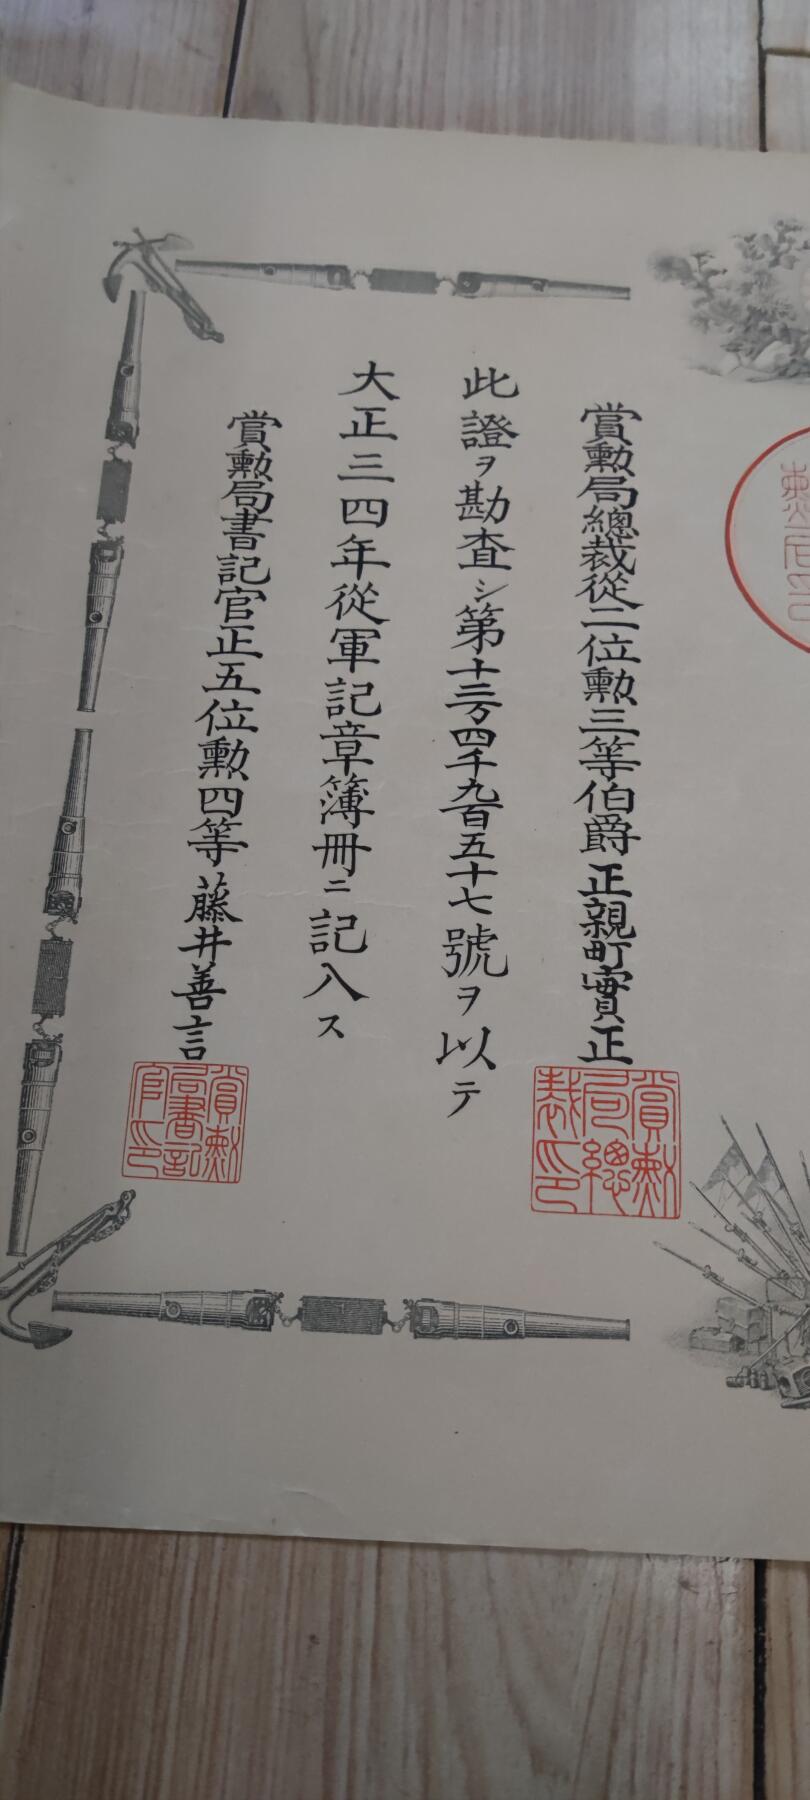 賞勲局總裁從二位勲三等伯爵正親町實正
此證ヲ勘査シ第十三万四千九百五十七號ヲ以テ
大正三四年從軍記章簿冊ニ記入ス
賞勲局書記官正五位勲四等藤井善言
賞勲局總裁印
賞勲局書記官印